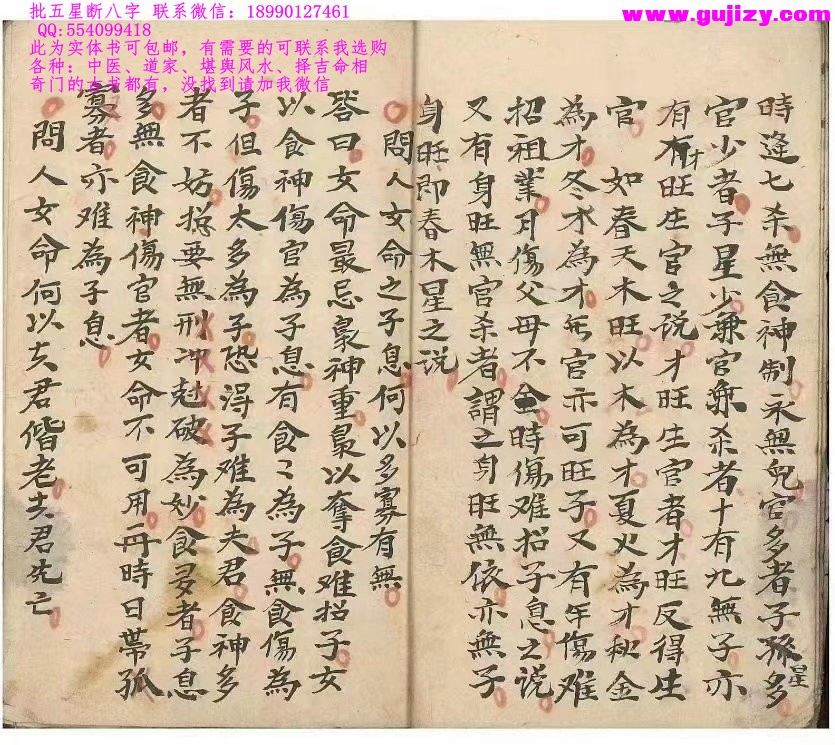 批五星断八字 联系微信：18990127461
QQ:554099418
此为实体书可包邮，有需要的可联系我选购
各种：中医、道家、堪舆风水、择吉命相
奇门的古书都有，没找到请加我微信
www.gujizy.com
時逢七杀無食神制永無兒官多者子孫多
星
官少者子星少兼官兼杀者十有九無子亦
有有旺生官之说才旺生官者才旺反得生
才
官 如春天木旺以木為才夏火為才秋金
為才冬水為才无官亦可旺子又有年傷难
招祖業月傷父母不全時傷难招子息之说
又有身旺無官杀者謂之身旺無依亦無子
身旺即春木星之说
問人女命之子息何以多寡有無
答曰女命最忌梟神重梟以奪食难招子女
以食神傷官為子息有食〻為子無食傷為
子但傷太多為子恐淂子难為夫君食神多
者不妨揔要無刑冲尅破為妙食多者子息
多無食神傷官者女命不可用冊時日帶孤
寡者亦难為子息
問人女命何以夫君偕老夫君死亡